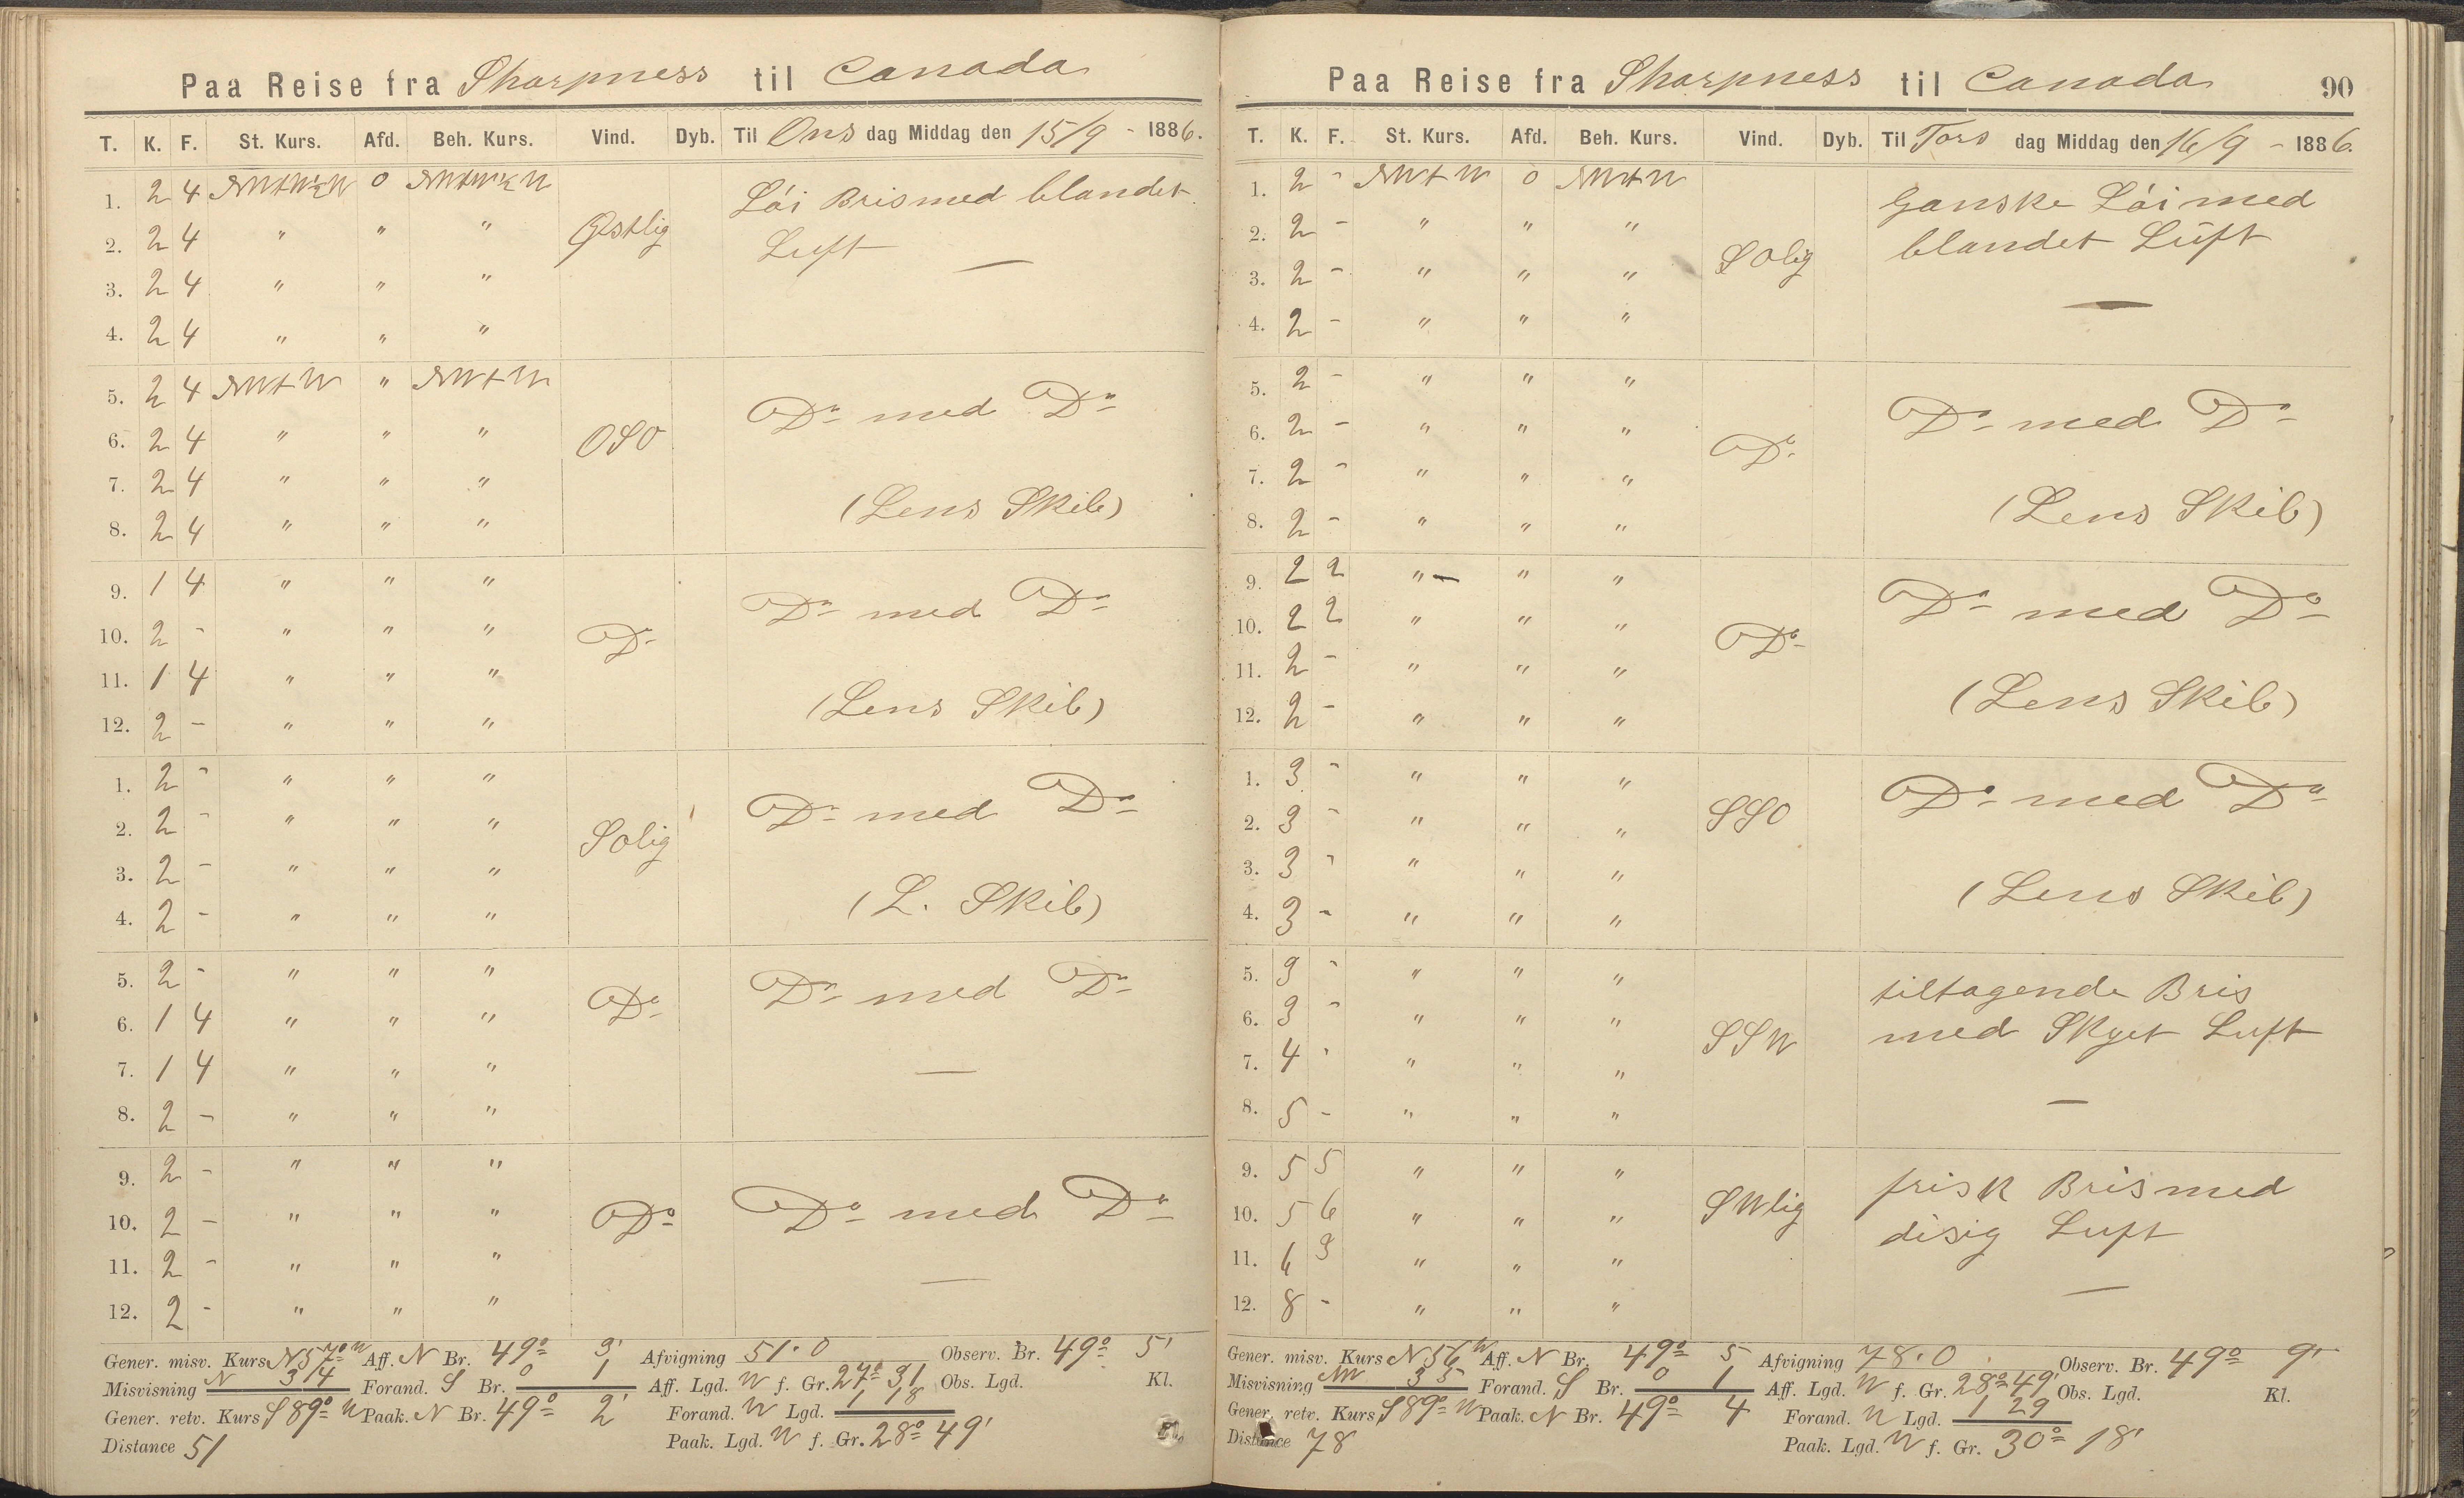 Paa Reise fra Sharpness til Canada
T. K. F. St. Kurs. Afd. Beh. Kurs. Vind. Dyb. Til Onsdag Middag den 15/9 - 1886.
1. 2 4 NWtW½W 0 NWtW½W Løi Bris med blandet
2. 2 4 " " " Østlig Luft
3. 2 4 " " " —
4. 2 4 " " "
5. 2 4 NWtW " NWtW Do med Do
6. 2 4 " " " OSO
7. 2 4 " " "
8. 2 4 " " " (Lens Skib)
9. 1 4 " " " Do med Do
10. 2 - " " " Do
11. 1 4 " " "
12. 2 - " " " (Lens Skib)
1. 2 - " " " Do med Do
2. 2 - " " " SOlig
3. 2 - " " "
4. 2 - " " " (L. Skib)
5. 2 - " " " Do med Do
6. 1 4 " " " Do
7. 1 4 " " " —
8. 2 - " " "
9. 2 - " " "
10. 2 - " " " Do Do med Do
11. 2 - " " " —
12. 2 - " " "
Gener. misv. Kurs N 57° W Aff. N Br. 49° 3' Afvigning 51.0 Observ. Br. 49° 5'
Misvisning N 314 Forand. S Br. 0 1 Aff. Lgd. W f. Gr. 27° 31 Obs. Lgd. Kl.
Gener. retv. Kurs S 89° W Paak. N Br. 49° 2' Forand. W Lgd. 1 18
Distance 51 Paak. Lgd. W f. Gr. 28° 49'
Paa Reise fra Sharpness til Canada 90
T. K. F. St. Kurs. Afd. Beh. Kurs. Vind. Dyb. Til Torsdag Middag den 16/9 - 1886.
1. 2 - NWtW 0 NWtW Ganske Løi med
2. 2 - " " " SOlig blandet Luft
3. 2 - " " " —
4. 2 - " " "
5. 2 - " " " Do med Do
6. 2 - " " " Do
7. 2 - " " "
8. 2 - " " " (Lens Skib)
9. 2 2 " " " Do med Do
10. 2 2 " " " Do
11. 2 - " " "
12. 2 - " " " (Lens Skib)
1. 3 - " " " Do med Do
2. 3 - " " " SSO
3. 3 - " " "
4. 3 - " " " (Lens Skib)
5. 3 - " " " tiltagende Bris
6. 3 - " " " SSW med Skyet Luft
7. 4 - " " "
8. 5 - " " " —
9. 5 5 " " " frisk Bris med
10. 5 6 " " " SWlig disig Luft
11. 6 3 " " "
12. 8 - " " " —
Gener. misv. Kurs N 56 W Aff. N Br. 49° 5 Afvigning 78.0 Observ. Br. 49° 9'
Misvisning 35 Forand. S Br. 0 1 Aff. Lgd. W f. Gr. 28° 49' Obs. Lgd. Kl.
Gener. retv. Kurs S 89° W Paak. N Br. 49° 4 Forand. W Lgd. 1 29
Distance 78 Paak. Lgd. W f. Gr. 30° 18'